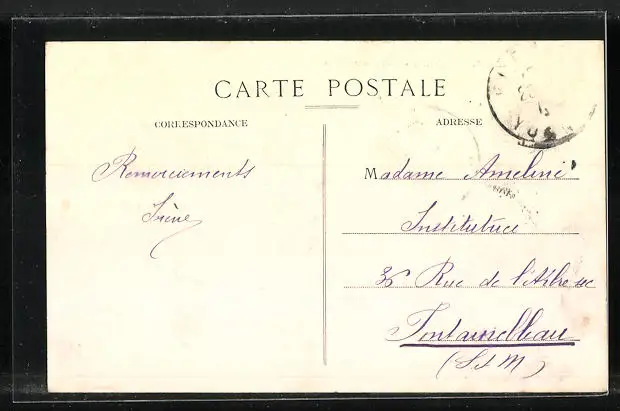 CARTE POSTALE
CORRESPONDANCE
Remerciements
Irène
ADRESSE
Madame Ameline
Institutrice
36 Rue de l'Arbre sec
Fontainebleau
(S et M)